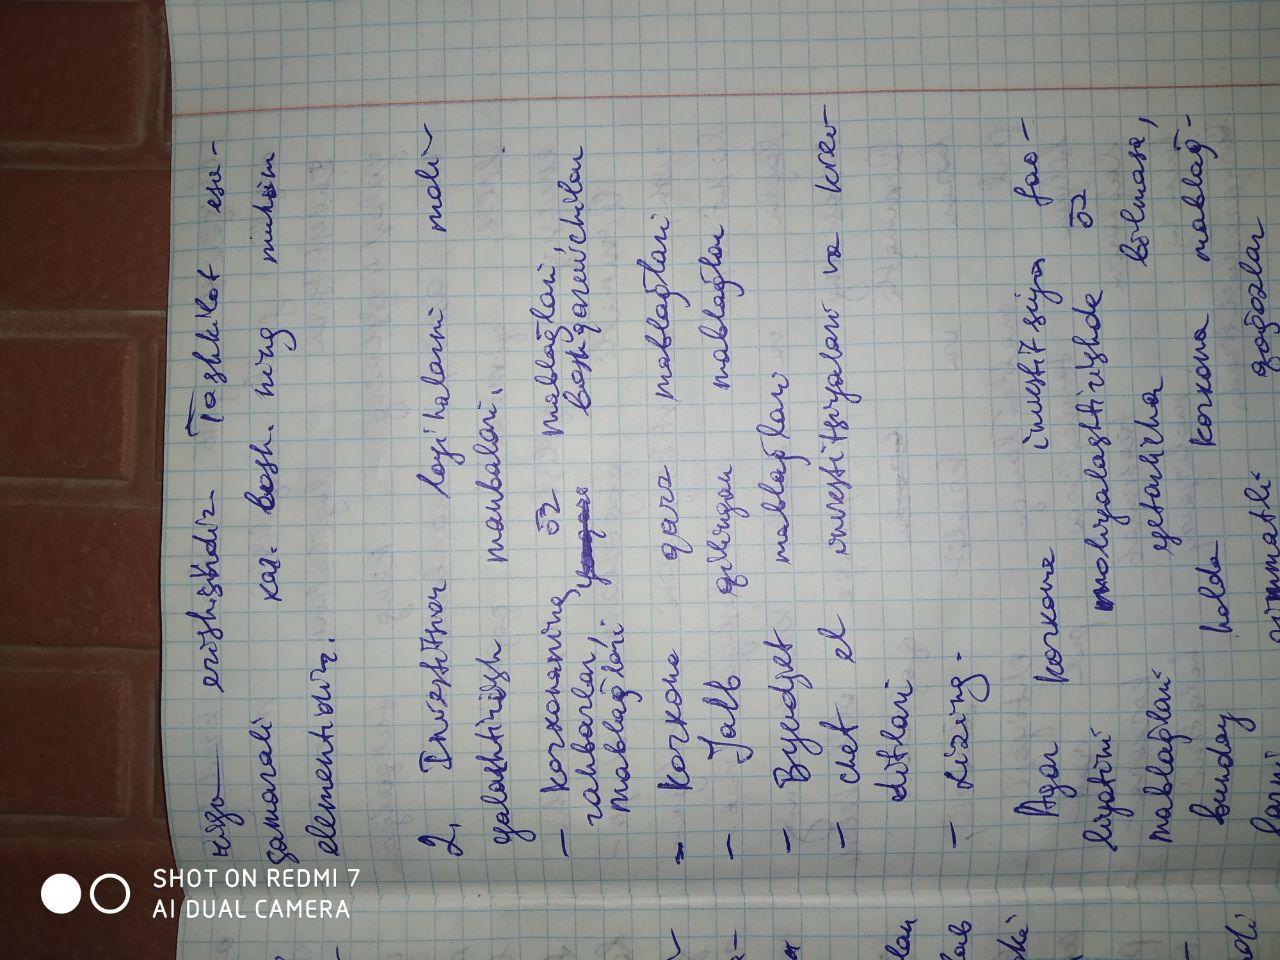 erishishdir Tashkilot esa-
samarali kal. bosh. ning muhim
elementidir.
2. Investitsion loyihalarni moli-
yalashtirish manbalari.
- Korxonaning öz mablag̃lari,
rahbarlar, boshqaruvchilar
mablag̃lari
- Korxona qarz mablag̃lari
- Jalb qilingan mablag̃lar
- Byudjet mablag̃lari
- chet el investitsiyalari va kre-
ditlari
- Lizing.
Agar korxona investitsiya fao-
liyatini moliyalashtirishda öz
mablag̃lari yetarlicha bölmasa,
bunday holda korxona mablag̃-
qimmatli qog̃ozlar
SHOT ON REDMI 7
AI DUAL CAMERA